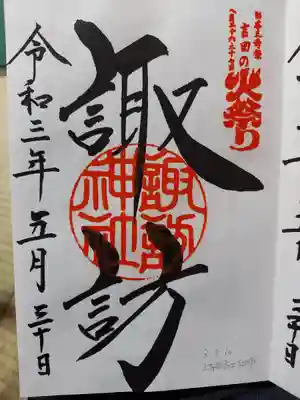 日本三奇祭
吉田の火祭り
八月二十六二十七日
諏訪
諏訪神社
令和三年五月三十日